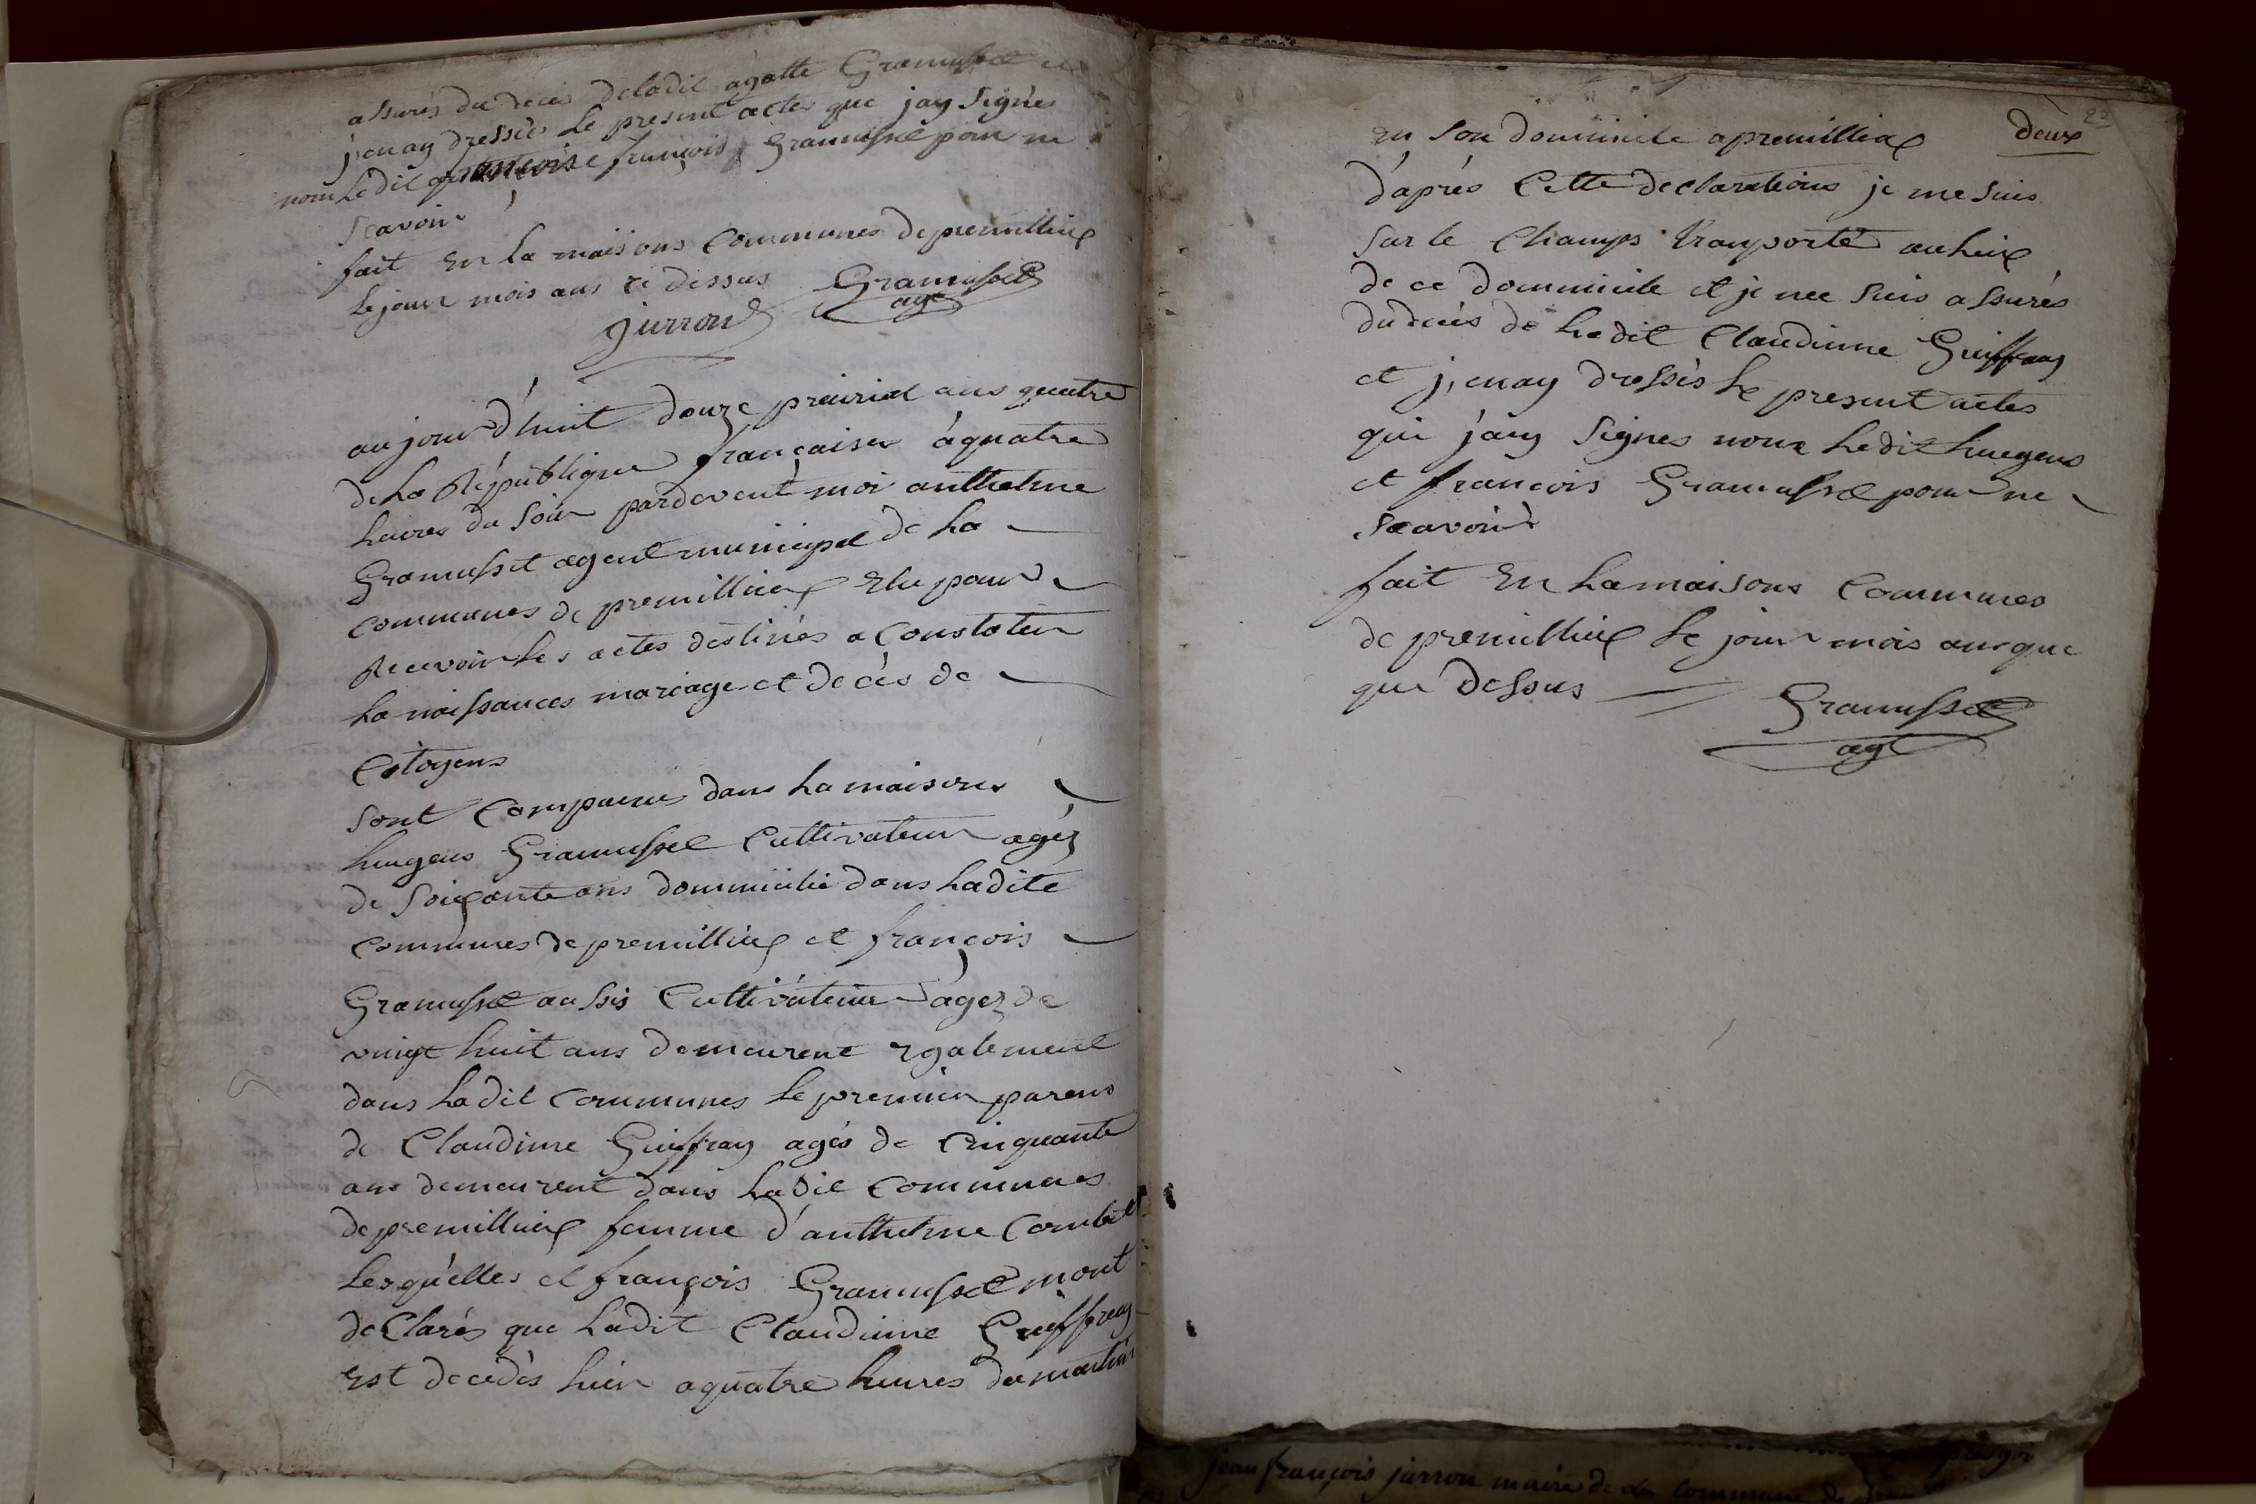 assurés du deces deladit agatte Gramusset et
j'enay dressés le present actes que jay Signés
nom Ledit françois Gramusset pour ne
scavoir
fait En la maisons Communes de premillieux
le jour mois ans ci dessus Gramusset
agt
jurron
aujourd'huit douze prairial ans quatre
de la République françaises à quatre
heures du Soir pardevent moi anthelme
Gramusset agent municipal de la
communes de premillieux Elu pour
Recevoir les actes destinés a Constater
la naissances mariage et décès de
Citoyens
sont Comparues dans la maisons
hugens Gramusset Cultivateur agéz
de Soixante ans dommicilié dans ladite
communes de premillieux et françois
Gramusset aussis Cultivateur âgez de
vingt huit ans demeurent Egalement
dans ladit communes le premier parens
de Claudinne Guiffray agés de Cinquante
ans demeurent dans ladit communes
de premillieux femme d'anthelme Combet
lesquelles et françois Gramusset mont
declarés que ladit Claudinne Guiffray
Est decedés hier a quatre heures du matin
22
En Son dommicile a premillieux deux
d'aprés Cette declarations je me Suis
Sur le Champs tranporté au lieux
de ce dommicile et je nee Suis assurés
du decés de ledit Claudinne Guiffray
et j'enay dressés le present actes
que j'ay Signes nom ledit hugens
et françois Gramusset pour ne
scavoir
fait En la maisons Communes
de premillieux le jour mois ans que
que dessus Gramusset
agt
jean françois jurron maire de la commune de